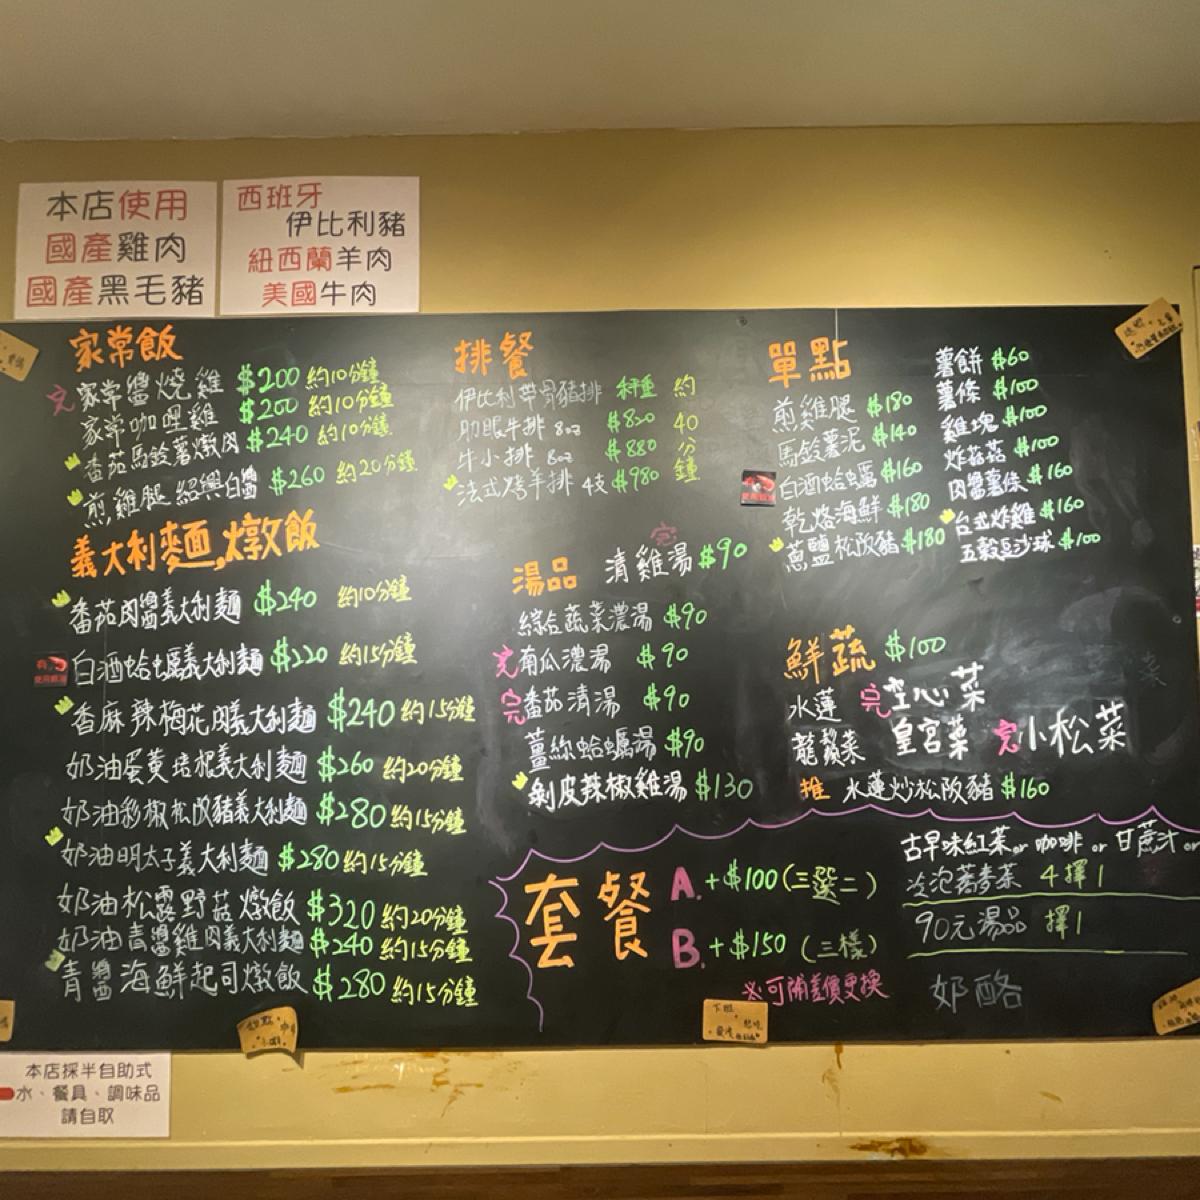 本店使用
國產雞肉
國產黑毛豬
西班牙
伊比利豬
紐西蘭羊肉
美國牛肉
家常飯
完 家常醬燒雞 $200 約10分鐘
家常咖哩雞 $200 約10分鐘
番茄馬鈴薯燉肉 $240 約10分鐘
煎雞腿 紹興白醬 $260 約20分鐘
義大利麵,燉飯
番茄肉醬義大利麵 $240 約10分鐘
白酒蛤蠣義大利麵 $220 約15分鐘
香麻辣梅花肉義大利麵 $240 約15分鐘
奶油蛋黃培根義大利麵 $260 約20分鐘
奶油彩椒松阪豬義大利麵 $280 約15分鐘
奶油明太子義大利麵 $280 約15分鐘
奶油松露野菇燉飯 $320 約20分鐘
奶油青醬雞肉義大利麵 $240 約15分鐘
青醬海鮮起司燉飯 $280 約15分鐘
排餐
伊比利帶骨豬排 秤重 約
肋眼牛排 8oz $820 40
牛小排 8oz $880 分
法式烤羊排 4支 $980 鐘
湯品
完
清雞湯 $90
綜合蔬菜濃湯 $90
完 南瓜濃湯 $90
完 番茄清湯 $90
薑絲蛤蠣湯 $90
剝皮辣椒雞湯 $130
單點
煎雞腿 $180
馬鈴薯泥 $140
白酒蛤蠣 $160
乾烙海鮮 $180
蔥鹽松阪豬 $180
薯餅 $60
薯條 $100
雞塊 $100
炸菇菇 $100
肉醬薯條 $160
台式炸雞 $160
五穀豆沙球 $100
鮮蔬 $100
水蓮 完 空心菜
龍鬚菜 皇宮菜 完 小松菜
推 水蓮炒松阪豬 $160
套餐
A. +$100 (三選二)
B. +$150 (三樣)
※可補差價更換
古早味紅茶 or 咖啡 or 甘蔗汁 or
冷泡蕎麥茶 4擇1
90元湯品 擇1
奶酪
本店採半自助式
水、餐具、調味品
請自取